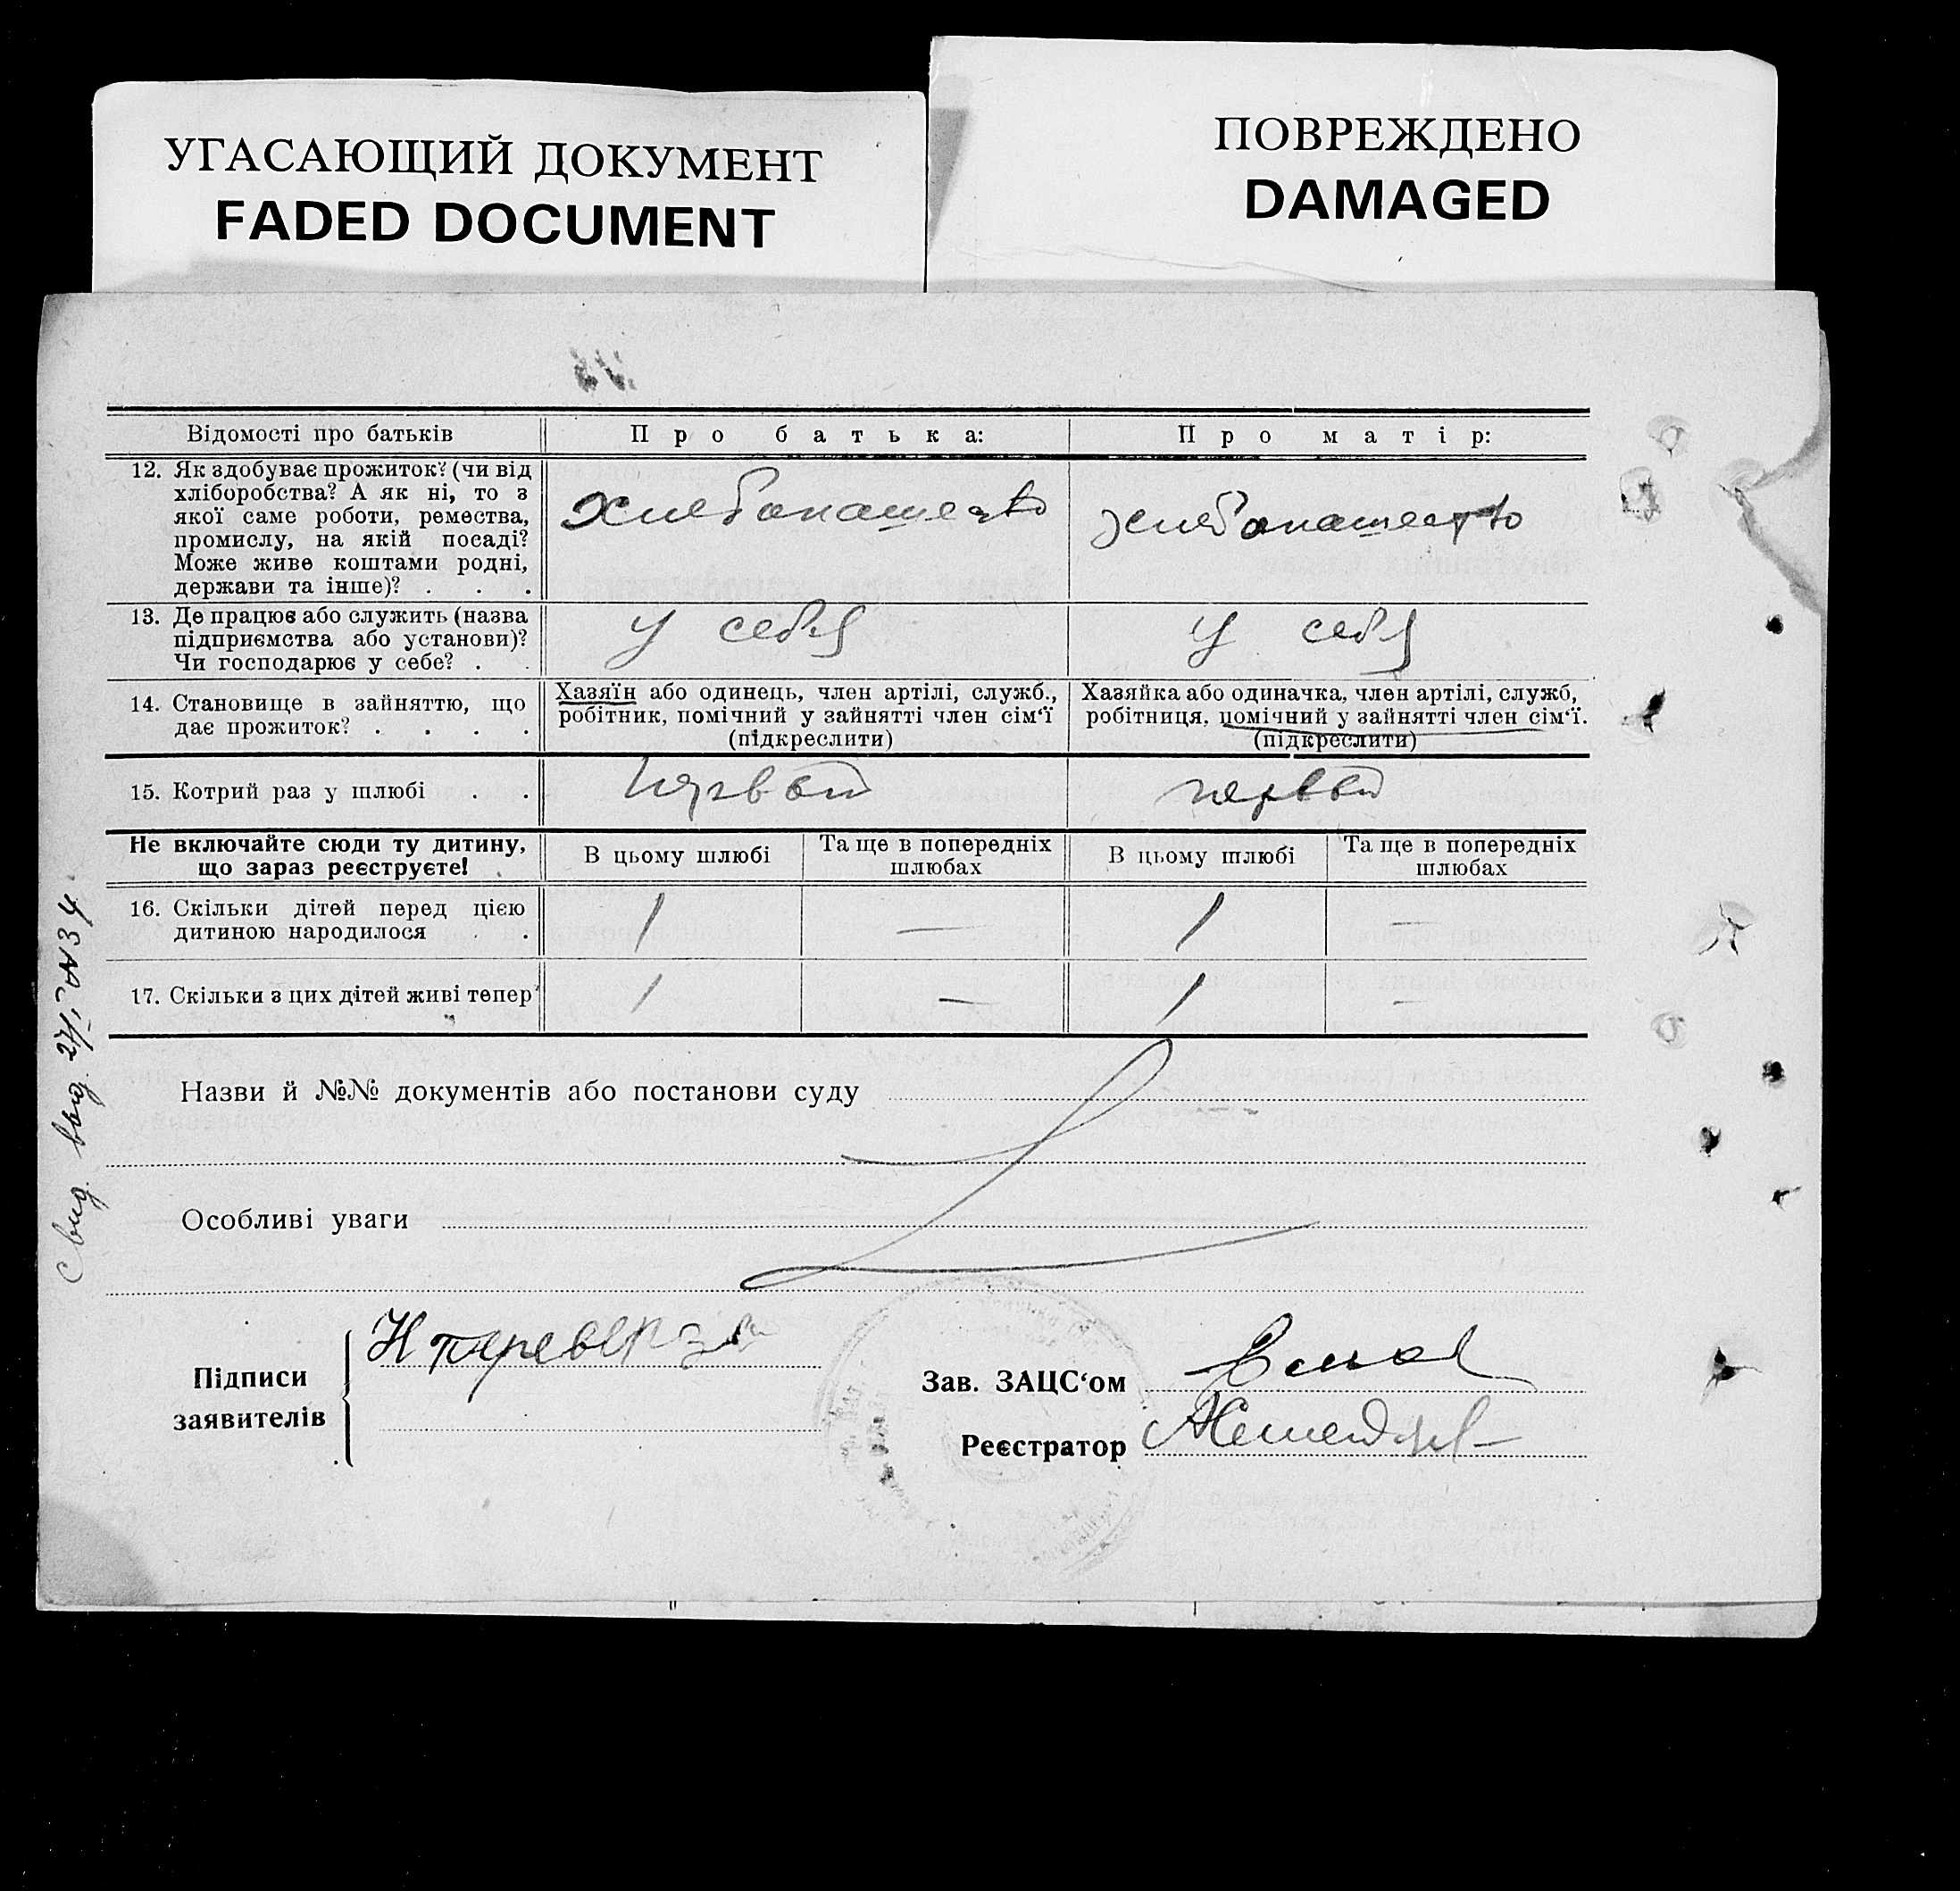 УГАСАЮЩИЙ ДОКУМЕНТ
FADED DOCUMENT
ПОВРЕЖДЕНО
DAMAGED
Відомості про батьків
Про батька:
Про матір:
12. Як здобуває прожиток? (чи від
хліборобства? А як ні, то з
якої саме роботи, ремества,
промислу, на якій посаді?
Може живе коштами родні,
держави та інше)? . . .
Хлебопашество
хлебопашество
13. Де працює або служить (назва
підприємства або установи)?
Чи господарює у себе? . .
у себя
у себя
14. Становище в зайняттю, що
дає прожиток? . . . .
Хазяїн або одинець, член артілі, служб.,
робітник, помічний у зайнятті член сім‘ї
(підкреслити)
Хазяйка або одиначка, член артілі, служб,
робітниця, помічний у зайнятті член сім‘ї.
(підкреслити)
15. Котрий раз у шлюбі . .
первый
первый
Не включайте сюди ту дитину,
що зараз реєструєте!
В цьому шлюбі
Та ще в попередніх
шлюбах
В цьому шлюбі
Та ще в попередніх
шлюбах
16. Скільки дітей перед цією
дитиною народилося . .
1 — 1 —
17. Скільки з цих дітей живі тепер
1 — 1 —
Назви й №№ документів або постанови суду
Особливі уваги
Підписи
заявителів
Зав. ЗАЦС‘ом
Реєстратор
Свид. выд.